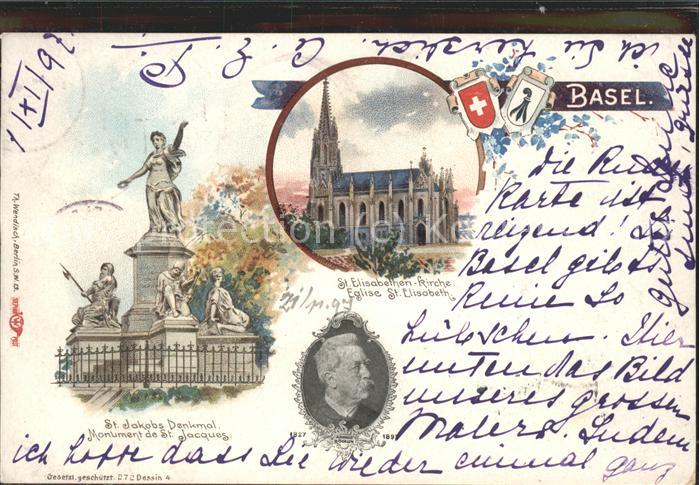 1/XI/97.
BASEL.
Die Rud
Karte ist
reizend! In
Basel gibt es
Keine so
hübschen. Hier
unten das Bild
unseres grossen
Malers. Indem
ich hoffe dass Sie wieder einmal ganz
guter
ich Sie herzlich.
St. Elisabethen-Kirche.
Eglise St. Elisabeth.
St. Jakobs Denkmal.
Monument de St. Jacques
1827
189
Th. Wendisch, Berlin S.W.D.
Gesetzl. geschützt. 272 Dessin 4